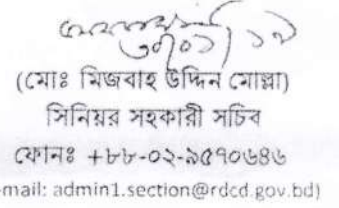 ৩০/০১/১৯
(মোঃ মিজবাহ উদ্দিন মোল্লা)
সিনিয়র সহকারী সচিব
ফোনঃ +৮৮-০২-৯৫৭০৬৮৬
-mail: admin1.section@rdcd.gov.bd)